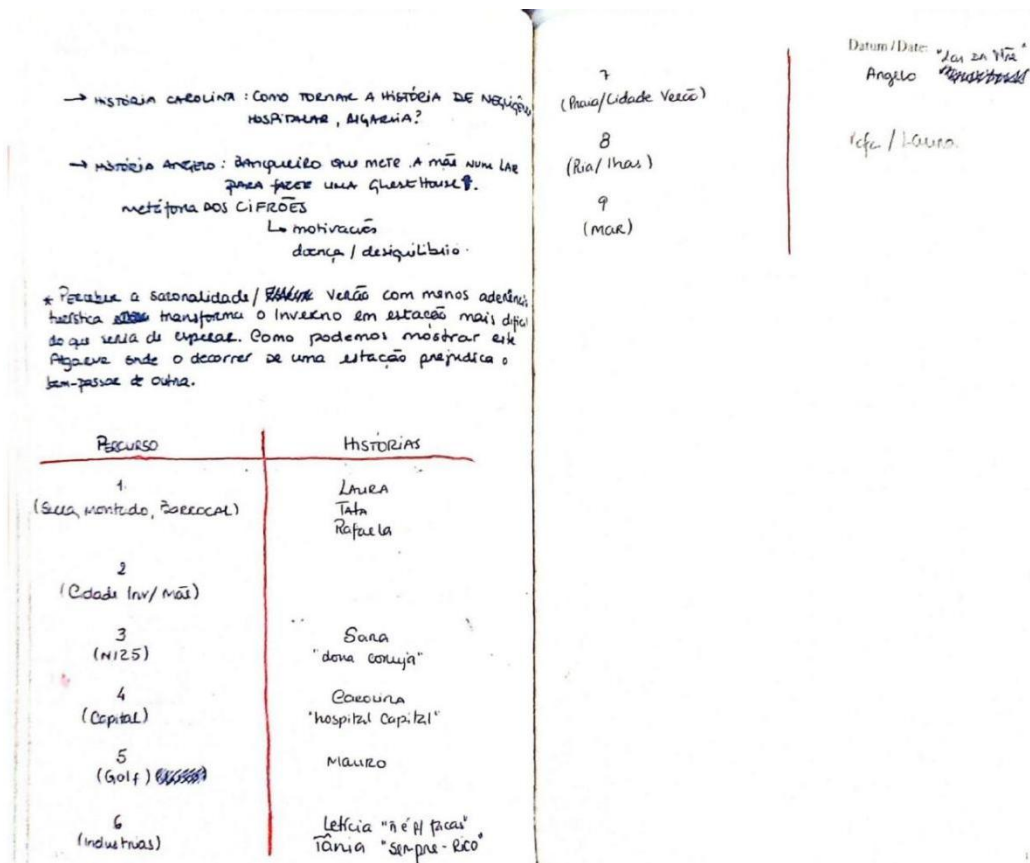 → HISTÓRIA CAROLINA: COMO TORNAR A HISTÓRIA DE NEGLIGÊN
HOSPITALAR, ALGARVIA?
→ HISTÓRIA ANGELO: BANQUEIRO QUE METE A MÃE NUM LAR
PARA FAZER UMA GhestHouse.
metáfora DOS CIFRÕES
↳ motivações
doença / desiquilíbrio.
* Perceber a sazonalidade/ verão com menos aderência
turística transforma o Inverno em estação mais difícil
do que seria de esperar. Como podemos mostrar este
Algarve onde o decorrer de uma estação prejudica o
bem-passar de outra.
PERCURSO
HISTÓRIAS
1
(Serra, Montado, BARROCAL)
LAURA
Tata
Rafaela
2
(Cidade Inv/ Mãe)
3
(N125)
Sara
"dona coruja"
4
(Capital)
CAROLINA
"hospital Capital"
5
(Golf)
Mauro
6
(Industrias)
Letícia "ñ é p/ facas"
Tânia "sempre-Rico"
Datum / Date:
7
(Praia/Cidade Verão)
"Lar da Mãe"
Angelo
8
(Ria/ Ilhas)
/ Laura
9
(MAR)